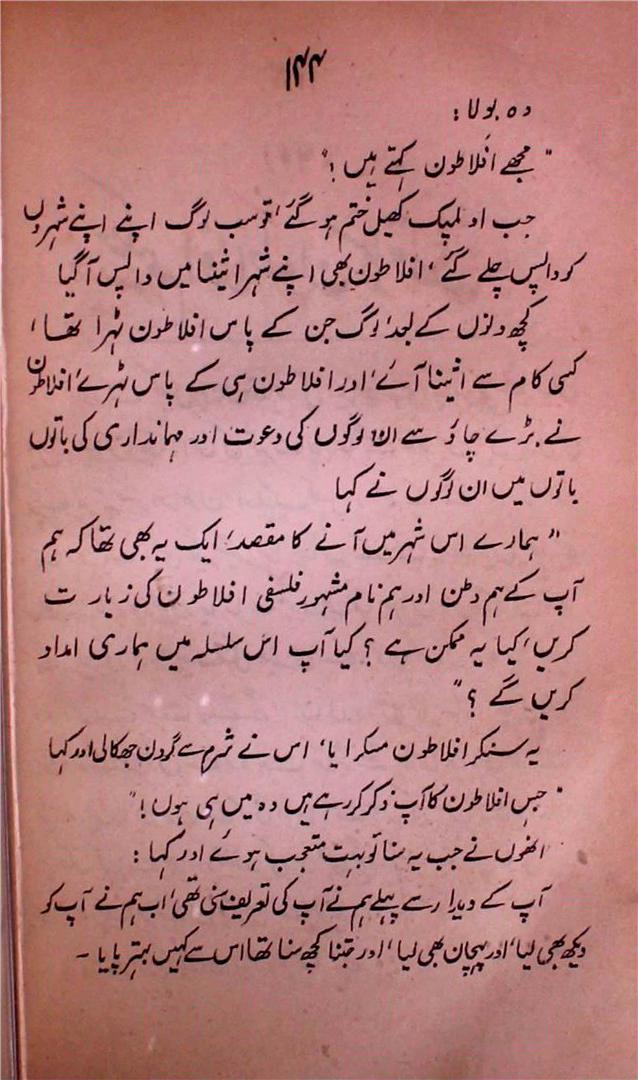 ۱۴۴
وہ بولا:
"مجھے افلاطون کہتے ہیں!"
جب اولمپک کھیل ختم ہو گئے، تو سب لوگ اپنے اپنے شہروں
کو واپس چلے گئے، افلاطون بھی اپنے شہر اثینا میں واپس آگیا
کچھ دنوں کے بعد، لوگ جن کے پاس افلاطون ٹہرا تھا،
کسی کام سے اثینا آئے، اور افلاطون ہی کے پاس ٹہرے، افلاطون
نے بڑے چاؤ سے ان لوگوں کی دعوت اور مہمانداری کی باتوں
باتوں میں ان لوگوں نے کہا
"ہمارے اس شہر میں آنے کا مقصد، ایک یہ بھی تھا کہ ہم
آپ کے ہم وطن اور ہم نام مشہور فلسفی افلاطون کی زیارت
کریں، کیا یہ ممکن ہے؟ کیا آپ اس سلسلہ میں ہماری امداد
کریں گے؟"
یہ سنکر افلاطون مسکرایا، اس نے شرم سے گردن جھکالی اور کہا
"جس افلاطون کا آپ ذکر کر رہے ہیں وہ میں ہی ہوں!"
انھوں نے جب یہ سنا تو بہت متعجب ہوئے اور کہا:
آپ کے دیدار سے پہلے ہم نے آپ کی تعریف سنی تھی، اب ہم نے آپ کو
دیکھ بھی لیا، اور پہچان بھی لیا، اور جتنا کچھ سنا تھا اس سے کہیں بہتر پایا ۔